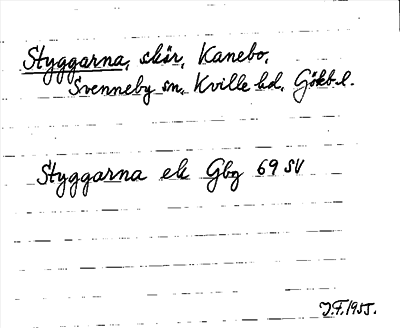 Styggarna, skär, Kanebo,
Svenneby sn, Kville hd, Gökb l.
Styggarna ek Gbg 69 SV
J.F. 1955.